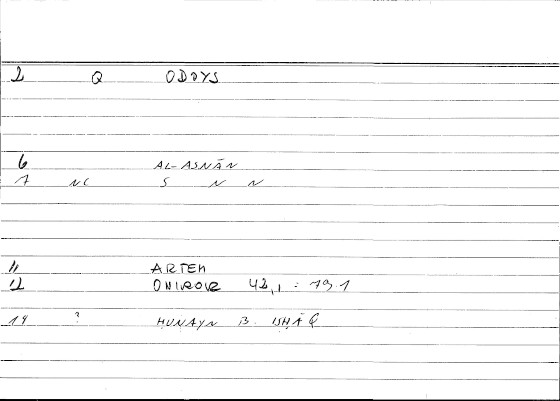 2 Q ODDYS
6 AL-ASNĀN
7 NC S N N
11 ARTEM
12 ONIROKR 42,1 : 79.1
14 ? HUNAYN B. ISHĀQ